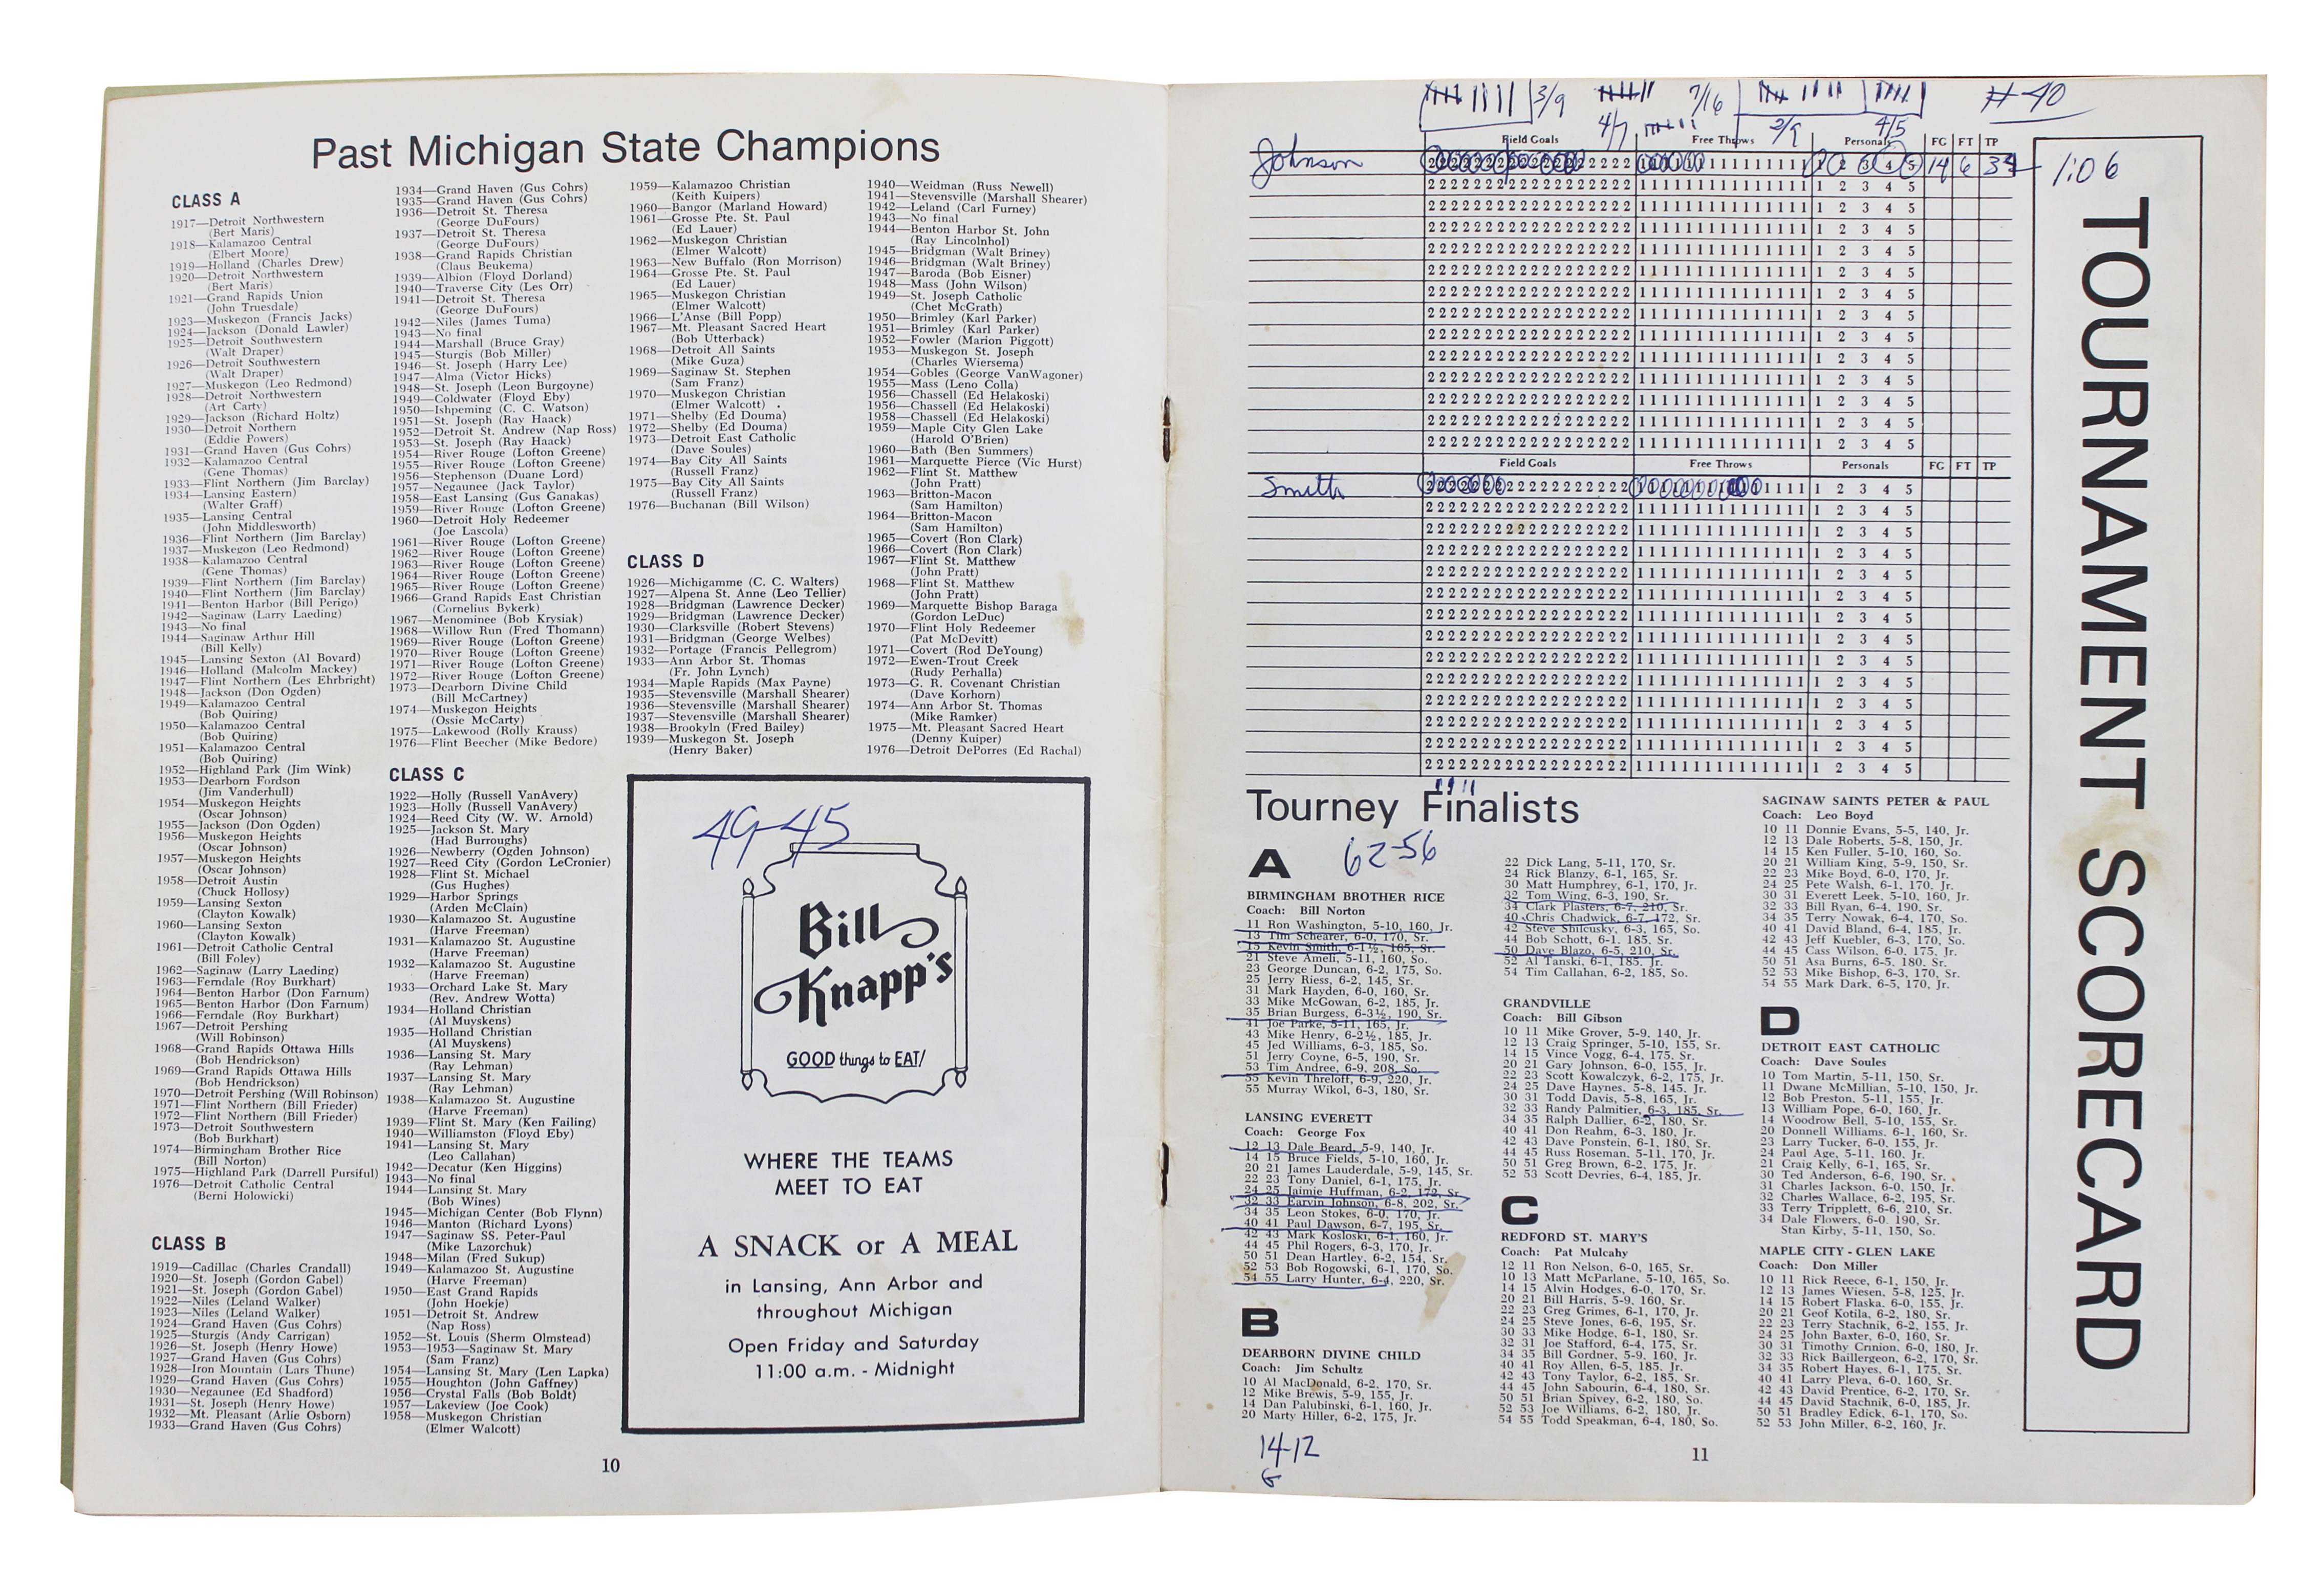 Past Michigan State Champions
CLASS A
1917—Detroit Northwestern
(Bert Maris)
1918—Kalamazoo Central
(Elbert Moore)
1919—Holland (Charles Drew)
1920—Detroit Northwestern
(Bert Maris)
1921—Grand Rapids Union
(John Truesdale)
1923—Muskegon (Francis Jacks)
1924—Jackson (Donald Lawler)
1925—Detroit Southwestern
(Walt Draper)
1926—Detroit Southwestern
(Walt Draper)
1927—Muskegon (Leo Redmond)
1928—Detroit Northwestern
(Art Carty)
1929—Jackson (Richard Holtz)
1930—Detroit Northern
(Eddie Powers)
1931—Grand Haven (Gus Cohrs)
1932—Kalamazoo Central
(Gene Thomas)
1933—Flint Northern (Jim Barclay)
1934—Lansing Eastern)
(Walter Graff)
1935—Lansing Central
(John Middlesworth)
1936—Flint Northern (Jim Barclay)
1937—Muskegon (Leo Redmond)
1938—Kalamazoo Central
(Gene Thomas)
1939—Flint Northern (Jim Barclay)
1940—Flint Northern (Jim Barclay)
1941—Benton Harbor (Bill Perigo)
1942—Saginaw (Larry Laeding)
1943—No final
1944—Saginaw Arthur Hill
(Bill Kelly)
1945—Lansing Sexton (Al Bovard)
1946—Holland (Malcolm Mackey)
1947—Flint Northern (Les Ehrbright)
1948—Jackson (Don Ogden)
1949—Kalamazoo Central
(Bob Quiring)
1950—Kalamazoo Central
(Bob Quiring)
1951—Kalamazoo Central
(Bob Quiring)
1952—Highland Park (Jim Wink)
1953—Dearborn Fordson
(Jim Vanderhull)
1954—Muskegon Heights
(Oscar Johnson)
1955—Jackson (Don Ogden)
1956—Muskegon Heights
(Oscar Johnson)
1957—Muskegon Heights
(Oscar Johnson)
1958—Detroit Austin
(Chuck Hollosy)
1959—Lansing Sexton
(Clayton Kowalk)
1960—Lansing Sexton
(Clayton Kowalk)
1961—Detroit Catholic Central
(Bill Foley)
1962—Saginaw (Larry Laeding)
1963—Ferndale (Roy Burkhart)
1964—Benton Harbor (Don Farnum)
1965—Benton Harbor (Don Farnum)
1966—Ferndale (Roy Burkhart)
1967—Detroit Pershing
(Will Robinson)
1968—Grand Rapids Ottawa Hills
(Bob Hendrickson)
1969—Grand Rapids Ottawa Hills
(Bob Hendrickson)
1970—Detroit Pershing (Will Robinson)
1971—Flint Northern (Bill Frieder)
1972—Flint Northern (Bill Frieder)
1973—Detroit Southwestern
(Bob Burkhart)
1974—Birmingham Brother Rice
(Bill Norton)
1975—Highland Park (Darrell Pursiful)
1976—Detroit Catholic Central
(Berni Holowicki)
CLASS B
1919—Cadillac (Charles Crandall)
1920—St. Joseph (Gordon Gabel)
1921—St. Joseph (Gordon Gabel)
1922—Niles (Leland Walker)
1923—Niles (Leland Walker)
1924—Grand Haven (Gus Cohrs)
1925—Sturgis (Andy Carrigan)
1926—St. Joseph (Henry Howe)
1927—Grand Haven (Gus Cohrs)
1928—Iron Mountain (Lars Thune)
1929—Grand Haven (Gus Cohrs)
1930—Negaunee (Ed Shadford)
1931—St. Joseph (Henry Howe)
1932—Mt. Pleasant (Arlie Osborn)
1933—Grand Haven (Gus Cohrs)
1934—Grand Haven (Gus Cohrs)
1935—Grand Haven (Gus Cohrs)
1936—Detroit St. Theresa
(George DuFours)
1937—Detroit St. Theresa
(George DuFours)
1938—Grand Rapids Christian
(Claus Beukema)
1939—Albion (Floyd Dorland)
1940—Traverse City (Les Orr)
1941—Detroit St. Theresa
(George DuFours)
1942—Niles (James Tuma)
1943—No final
1944—Marshall (Bruce Gray)
1945—Sturgis (Bob Miller)
1946—St. Joseph (Harry Lee)
1947—Alma (Victor Hicks)
1948—St. Joseph (Leon Burgoyne)
1949—Coldwater (Floyd Eby)
1950—Ishpeming (C. C. Watson)
1951—St. Joseph (Ray Haack)
1952—Detroit St. Andrew (Nap Ross)
1953—St. Joseph (Ray Haack)
1954—River Rouge (Lofton Greene)
1955—River Rouge (Lofton Greene)
1956—Stephenson (Duane Lord)
1957—Negaunee (Jack Taylor)
1958—East Lansing (Gus Ganakas)
1959—River Rouge (Lofton Greene)
1960—Detroit Holy Redeemer
(Joe Lascola)
1961—River Rouge (Lofton Greene)
1962—River Rouge (Lofton Greene)
1963—River Rouge (Lofton Greene)
1964—River Rouge (Lofton Greene)
1965—River Rouge (Lofton Greene)
1966—Grand Rapids East Christian
(Cornelius Bykerk)
1967—Menominee (Bob Krysiak)
1968—Willow Run (Fred Thomann)
1969—River Rouge (Lofton Greene)
1970—River Rouge (Lofton Greene)
1971—River Rouge (Lofton Greene)
1972—River Rouge (Lofton Greene)
1973—Dearborn Divine Child
(Bill McCartney)
1974—Muskegon Heights
(Ossie McCarty)
1975—Lakewood (Rolly Krauss)
1976—Flint Beecher (Mike Bedore)
CLASS C
1922—Holly (Russell VanAvery)
1923—Holly (Russell VanAvery)
1924—Reed City (W. W. Arnold)
1925—Jackson St. Mary
(Had Burroughs)
1926—Newberry (Ogden Johnson)
1927—Reed City (Gordon LeCronier)
1928—Flint St. Michael
(Gus Hughes)
1929—Harbor Springs
(Arden McClain)
1930—Kalamazoo St. Augustine
(Harve Freeman)
1931—Kalamazoo St. Augustine
(Harve Freeman)
1932—Kalamazoo St. Augustine
(Harve Freeman)
1933—Orchard Lake St. Mary
(Rev. Andrew Wotta)
1934—Holland Christian
(Al Muyskens)
1935—Holland Christian
(Al Muyskens)
1936—Lansing St. Mary
(Ray Lehman)
1937—Lansing St. Mary
(Ray Lehman)
1938—Kalamazoo St. Augustine
(Harve Freeman)
1939—Flint St. Mary (Ken Failing)
1940—Williamston (Floyd Eby)
1941—Lansing St. Mary
(Leo Callahan)
1942—Decatur (Ken Higgins)
1943—No final
1944—Lansing St. Mary
(Bob Wines)
1945—Michigan Center (Bob Flynn)
1946—Manton (Richard Lyons)
1947—Saginaw SS. Peter-Paul
(Mike Lazorchuk)
1948—Milan (Fred Sukup)
1949—Kalamazoo St. Augustine
(Harve Freeman)
1950—East Grand Rapids
(John Hoekje)
1951—Detroit St. Andrew
(Nap Ross)
1952—St. Louis (Sherm Olmstead)
1953—1953—Saginaw St. Mary
(Sam Franz)
1954—Lansing St. Mary (Len Lapka)
1955—Houghton (John Gaffney)
1956—Crystal Falls (Bob Boldt)
1957—Lakeview (Joe Cook)
1958—Muskegon Christian
(Elmer Walcott)
1959—Kalamazoo Christian
(Keith Kuipers)
1960—Bangor (Marland Howard)
1961—Grosse Pte. St. Paul
(Ed Lauer)
1962—Muskegon Christian
(Elmer Walcott)
1963—New Buffalo (Ron Morrison)
1964—Grosse Pte. St. Paul
(Ed Lauer)
1965—Muskegon Christian
(Elmer Walcott)
1966—L'Anse (Bill Popp)
1967—Mt. Pleasant Sacred Heart
(Bob Utterback)
1968—Detroit All Saints
(Mike Guza)
1969—Saginaw St. Stephen
(Sam Franz)
1970—Muskegon Christian
(Elmer Walcott)
1971—Shelby (Ed Douma)
1972—Shelby (Ed Douma)
1973—Detroit East Catholic
(Dave Soules)
1974—Bay City All Saints
(Russell Franz)
1975—Bay City All Saints
(Russell Franz)
1976—Buchanan (Bill Wilson)
CLASS D
1926—Michigamme (C. C. Walters)
1927—Alpena St. Anne (Leo Tellier)
1928—Bridgman (Lawrence Decker)
1929—Bridgman (Lawrence Decker)
1930—Clarksville (Robert Stevens)
1931—Bridgman (George Welbes)
1932—Portage (Francis Pellegrom)
1933—Ann Arbor St. Thomas
(Fr. John Lynch)
1934—Maple Rapids (Max Payne)
1935—Stevensville (Marshall Shearer)
1936—Stevensville (Marshall Shearer)
1937—Stevensville (Marshall Shearer)
1938—Brookyln (Fred Bailey)
1939—Muskegon St. Joseph
(Henry Baker)
1940—Weidman (Russ Newell)
1941—Stevensville (Marshall Shearer)
1942—Leland (Carl Furney)
1943—No final
1944—Benton Harbor St. John
(Ray Lincolnhol)
1945—Bridgman (Walt Briney)
1946—Bridgman (Walt Briney)
1947—Baroda (Bob Eisner)
1948—Mass (John Wilson)
1949—St. Joseph Catholic
(Chet McGrath)
1950—Brimley (Karl Parker)
1951—Brimley (Karl Parker)
1952—Fowler (Marion Piggott)
1953—Muskegon St. Joseph
(Charles Wiersema)
1954—Gobles (George VanWagoner)
1955—Mass (Leno Colla)
1956—Chassell (Ed Helakoski)
1956—Chassell (Ed Helakoski)
1958—Chassell (Ed Helakoski)
1959—Maple City Glen Lake
(Harold O'Brien)
1960—Bath (Ben Summers)
1961—Marquette Pierce (Vic Hurst)
1962—Flint St. Matthew
(John Pratt)
1963—Britton-Macon
(Sam Hamilton)
1964—Britton-Macon
(Sam Hamilton)
1965—Covert (Ron Clark)
1966—Covert (Ron Clark)
1967—Flint St. Matthew
(John Pratt)
1968—Flint St. Matthew
(John Pratt)
1969—Marquette Bishop Baraga
(Gordon LeDuc)
1970—Flint Holy Redeemer
(Pat McDevitt)
1971—Covert (Rod DeYoung)
1972—Ewen-Trout Creek
(Rudy Perhalla)
1973—G. R. Covenant Christian
(Dave Korhorn)
1974—Ann Arbor St. Thomas
(Mike Ramker)
1975—Mt. Pleasant Sacred Heart
(Denny Kuiper)
1976—Detroit DePorres (Ed Rachal)
49-45
Bill Knapp's
GOOD things to EAT!
WHERE THE TEAMS
MEET TO EAT
A SNACK or A MEAL
in Lansing, Ann Arbor and
throughout Michigan
Open Friday and Saturday
11:00 a.m. - Midnight
10
3/9 7/16 #40
4/7 2/9 4/5
Field Goals Free Throws Personals FG FT TP
Johnson 14 6 34 1:06
2222222222222222222 1111111111111111 1 2 3 4 5
Field Goals Free Throws Personals FG FT TP
Smith
2222222222222222222 1111111111111111 1 2 3 4 5
TOURNAMENT SCORECARD
Tourney Finalists
62-56
A
BIRMINGHAM BROTHER RICE
Coach: Bill Norton
11 Ron Washington, 5-10, 160, Jr.
13 Tim Schearer, 6-0, 170, Sr.
15 Kevin Smith, 6-1½, 165, Sr.
21 Steve Ameli, 5-11, 160, So.
23 George Duncan, 6-2, 175, So.
25 Jerry Riess, 6-2, 145, Sr.
31 Mark Hayden, 6-0, 160, Sr.
33 Mike McGowan, 6-2, 185, Jr.
35 Brian Burgess, 6-3½, 190, Sr.
41 Joe Parke, 5-11, 165, Jr.
43 Mike Henry, 6-2½, 185, Jr.
45 Jed Williams, 6-3, 185, So.
51 Jerry Coyne, 6-5, 190, Sr.
53 Tim Andree, 6-9, 208, So.
55 Kevin Threloff, 6-9, 220, Jr.
55 Murray Wikol, 6-3, 180, Sr.
LANSING EVERETT
Coach: George Fox
12 13 Dale Beard, 5-9, 140, Jr.
14 15 Bruce Fields, 5-10, 160, Jr.
20 21 James Lauderdale, 5-9, 145, Sr.
22 23 Tony Daniel, 6-1, 175, Jr.
24 25 Jaimie Huffman, 6-2, 172, Sr.
32 33 Earvin Johnson, 6-8, 202, Sr.
34 35 Leon Stokes, 6-0, 170, Jr.
40 41 Paul Dawson, 6-7, 195, Sr.
42 43 Mark Kosloski, 6-1, 160, Jr.
44 45 Phil Rogers, 6-3, 170, Jr.
50 51 Dean Hartley, 6-2, 154, Sr.
52 53 Bob Rogowski, 6-1, 170, So.
54 55 Larry Hunter, 6-4, 220, Sr.
B
DEARBORN DIVINE CHILD
Coach: Jim Schultz
10 Al MacDonald, 6-2, 170, Sr.
12 Mike Brewis, 5-9, 155, Jr.
14 Dan Palubinski, 6-1, 160, Jr.
20 Marty Hiller, 6-2, 175, Jr.
14-12
G
22 Dick Lang, 5-11, 170, Sr.
24 Rick Blanzy, 6-1, 165, Sr.
30 Matt Humphrey, 6-1, 170, Jr.
32 Tom Wing, 6-3, 190, Sr.
34 Clark Plasters, 6-7, 210, Sr.
40 Chris Chadwick, 6-7, 172, Sr.
42 Steve Shilcusky, 6-3, 165, So.
44 Bob Schott, 6-1, 185, Sr.
50 Dave Blazo, 6-5, 210, Sr.
52 Al Tanski, 6-1, 185, Jr.
54 Tim Callahan, 6-2, 185, So.
GRANDVILLE
Coach: Bill Gibson
10 11 Mike Grover, 5-9, 140, Jr.
12 13 Craig Springer, 5-10, 155, Sr.
14 15 Vince Vogg, 6-4, 175, Sr.
20 21 Gary Johnson, 6-0, 155, Jr.
22 23 Scott Kowalczyk, 6-2, 175, Jr.
24 25 Dave Haynes, 5-8, 145, Jr.
30 31 Todd Davis, 5-8, 165, Jr.
32 33 Randy Palmitier, 6-3, 185, Sr.
34 35 Ralph Dallier, 6-2, 180, Sr.
40 41 Don Reahm, 6-3, 180, Jr.
42 43 Dave Ponstein, 6-1, 180, Sr.
44 45 Russ Roseman, 5-11, 170, Jr.
50 51 Greg Brown, 6-2, 175, Jr.
52 53 Scott Devries, 6-4, 185, Jr.
C
REDFORD ST. MARY'S
Coach: Pat Mulcahy
12 11 Ron Nelson, 6-0, 165, Sr.
10 13 Matt McParlane, 5-10, 165, So.
14 15 Alvin Hodges, 6-0, 170, Sr.
20 21 Bill Harris, 5-9, 160, Sr.
22 23 Greg Grimes, 6-1, 170, Jr.
24 25 Steve Jones, 6-6, 195, Sr.
30 33 Mike Hodge, 6-1, 180, Sr.
32 31 Joe Stafford, 6-4, 175, Sr.
34 35 Bill Gordner, 5-9, 160, Jr.
40 41 Roy Allen, 6-5, 185, Jr.
42 43 Tony Taylor, 6-2, 185, Sr.
44 45 John Sabourin, 6-4, 180, Sr.
50 51 Brian Spivey, 6-2, 180, So.
52 53 Joe Williams, 6-2, 180, Jr.
54 55 Todd Speakman, 6-4, 180, So.
SAGINAW SAINTS PETER & PAUL
Coach: Leo Boyd
10 11 Donnie Evans, 5-5, 140, Jr.
12 13 Dale Roberts, 5-8, 150, Jr.
14 15 Ken Fuller, 5-10, 160, So.
20 21 William King, 5-9, 150, Sr.
22 23 Mike Boyd, 6-0, 170, Jr.
24 25 Pete Walsh, 6-1, 170, Jr.
30 31 Everett Leek, 5-10, 160, Jr.
32 33 Bill Ryan, 6-4, 190, Sr.
34 35 Terry Nowak, 6-4, 170, So.
40 41 David Bland, 6-4, 185, Jr.
42 43 Jeff Kuebler, 6-3, 170, So.
44 45 Cass Wilson, 6-0, 175, Jr.
50 51 Asa Burns, 6-5, 180, Sr.
52 53 Mike Bishop, 6-3, 170, Sr.
54 55 Mark Dark, 6-5, 170, Jr.
D
DETROIT EAST CATHOLIC
Coach: Dave Soules
10 Tom Martin, 5-11, 150, Sr.
11 Dwane McMillian, 5-10, 150, Jr.
12 Bob Preston, 5-11, 155, Jr.
13 William Pope, 6-0, 160, Jr.
14 Woodrow Bell, 5-10, 155, Sr.
20 Donnell Williams, 6-1, 160, Sr.
23 Larry Tucker, 6-0, 155, Jr.
24 Paul Age, 5-11, 160, Jr.
21 Craig Kelly, 6-1, 165, Sr.
30 Ted Anderson, 6-6, 190, Sr.
31 Charles Jackson, 6-0, 150, Jr.
32 Charles Wallace, 6-2, 195, Sr.
33 Terry Tripplett, 6-6, 210, Sr.
34 Dale Flowers, 6-0, 190, Sr.
Stan Kirby, 5-11, 150, So.
MAPLE CITY - GLEN LAKE
Coach: Don Miller
10 11 Rick Reece, 6-1, 150, Jr.
12 13 James Wiesen, 5-8, 125, Jr.
14 15 Robert Flaska, 6-0, 155, Jr.
20 21 Geof Kotila, 6-2, 180, Sr.
22 23 Terry Stachnik, 6-2, 155, Jr.
24 25 John Baxter, 6-0, 160, Sr.
30 31 Timothy Crnion, 6-0, 180, Jr.
32 33 Rick Baillergeon, 6-2, 170, Sr.
34 35 Robert Hayes, 6-1, 175, Sr.
40 41 Larry Pleva, 6-0, 160, Sr.
42 43 David Prentice, 6-2, 170, Sr.
44 45 David Stachnik, 6-0, 185, Jr.
50 51 Bradley Edick, 6-1, 170, So.
52 53 John Miller, 6-2, 160, Jr.
11